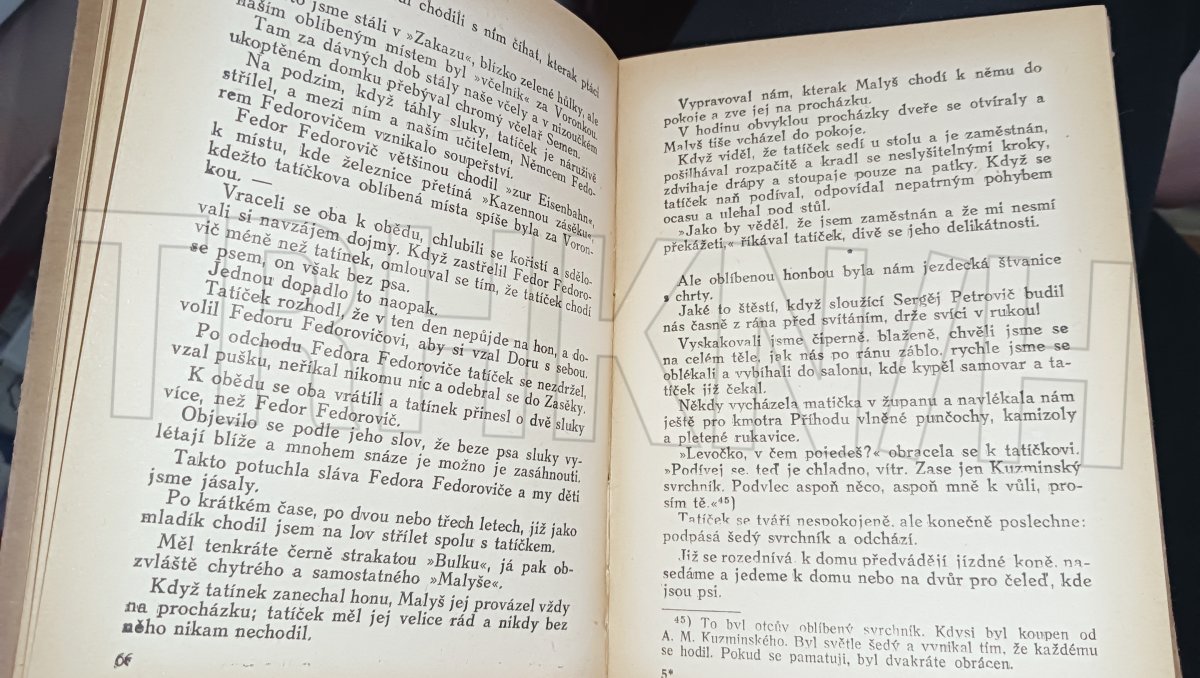 chodili s ním číhat, kterak ptáci
to jsme stáli v »Zakazu«, blízko zelené hůlky, ale
naším oblíbeným místem byl »včelník« za Voronkou.
Tam za dávných dob stály naše včely a v nizoučkém
ukoptěném domku přebýval chromý včelař Semen.
Na podzim, když táhly sluky, tatíček je náruživě
střílel, a mezi ním a naším učitelem, Němcem Fedo-
rem Fedorovičem vznikalo soupeřství.
Fedor Fedorovič většinou chodil »zur Eisenbahn«,
k místu, kde železnice přetíná »Kazennou záseku«,
kdežto tatíčkova oblíbená místa spíše byla za Voron-
kou. —
Vraceli se oba k obědu, chlubili se kořistí a sdělo-
vali si navzájem dojmy. Když zastřelil Fedor Fedoro-
vič méně než tatínek, omlouval se tím, že tatíček chodí
se psem, on však bez psa.
Jednou dopadlo to naopak.
Tatíček rozhodl, že v ten den nepůjde na hon, a do-
volil Fedoru Fedorovičovi, aby si vzal Doru s sebou.
Po odchodu Fedora Fedoroviče tatíček se nezdržel,
vzal pušku, neříkal nikomu nic a odebral se do Záseky.
K obědu se oba vrátili a tatínek přinesl o dvě sluky
více, než Fedor Fedorovič.
Objevilo se podle jeho slov, že beze psa sluky vy-
létají blíže a mnohem snáze je možno je zasáhnouti.
Takto potuchla sláva Fedora Fedoroviče a my děti
jsme jásaly.
Po krátkém čase, po dvou nebo třech letech, již jako
mladík chodil jsem na lov střílet spolu s tatíčkem.
Měl tenkráte černě strakatou »Bulku«, já pak ob-
zvláště chytrého a samostatného »Malyše«.
Když tatínek zanechal honu, Malyš jej provázel vždy
na procházku; tatíček měl jej velice rád a nikdy bez
něho nikam nechodil.
66
Vypravoval nám, kterak Malyš chodí k němu do
pokoje a zve jej na procházku.
V hodinu obvyklou procházky dveře se otvíraly a
Malyš tiše vcházel do pokoje.
Když viděl, že tatíček sedí u stolu a je zaměstnán,
pošilhával rozpačitě a kradl se neslyšitelnými kroky,
zdvihaje drápy a stoupaje pouze na patky. Když se
tatíček naň podíval, odpovídal nepatrným pohybem
ocasu a ulehal pod stůl.
»Jako by věděl, že jsem zaměstnán a že mi nesmí
překážeti,« říkával tatíček, divě se jeho delikátnosti.
*
Ale oblíbenou honbou byla nám jezdecká štvanice
s chrty.
Jaké to štěstí, když sloužící Sergěj Petrovič budil
nás časně z rána před svítáním, drže svíci v rukou!
Vyskakovali jsme čiperně, blaženě, chvěli jsme se
na celém těle, jak nás po ránu záblo, rychle jsme se
oblékali a vybíhali do salonu, kde kypěl samovar a ta-
tíček již čekal.
Někdy vycházela matička v županu a navlékala nám
ještě pro kmotra Příhodu vlněné punčochy, kamizoly
a pletené rukavice.
»Levočko, v čem pojedeš?« obracela se k tatíčkovi.
»Podívej se, teď je chladno, vítr. Zase jen Kuzminský
svrchník. Podvlec aspoň něco, aspoň mně k vůli, pro-
sím tě.«⁴⁵)
Tatíček se tváří nespokojeně, ale konečně poslechne:
podpásá šedý svrchník a odchází.
Již se rozednívá, k domu předvádějí jízdné koně, na-
sedáme a jedeme k domu nebo na dvůr pro čeleď, kde
jsou psi.
⁴⁵) To byl otcův oblíbený svrchník. Kdysi byl koupen od
A. M. Kuzminského. Byl světle šedý a vynikal tím, že každému
se hodil. Pokud se pamatuji, byl dvakráte obrácen.
5*
TRHKNIH